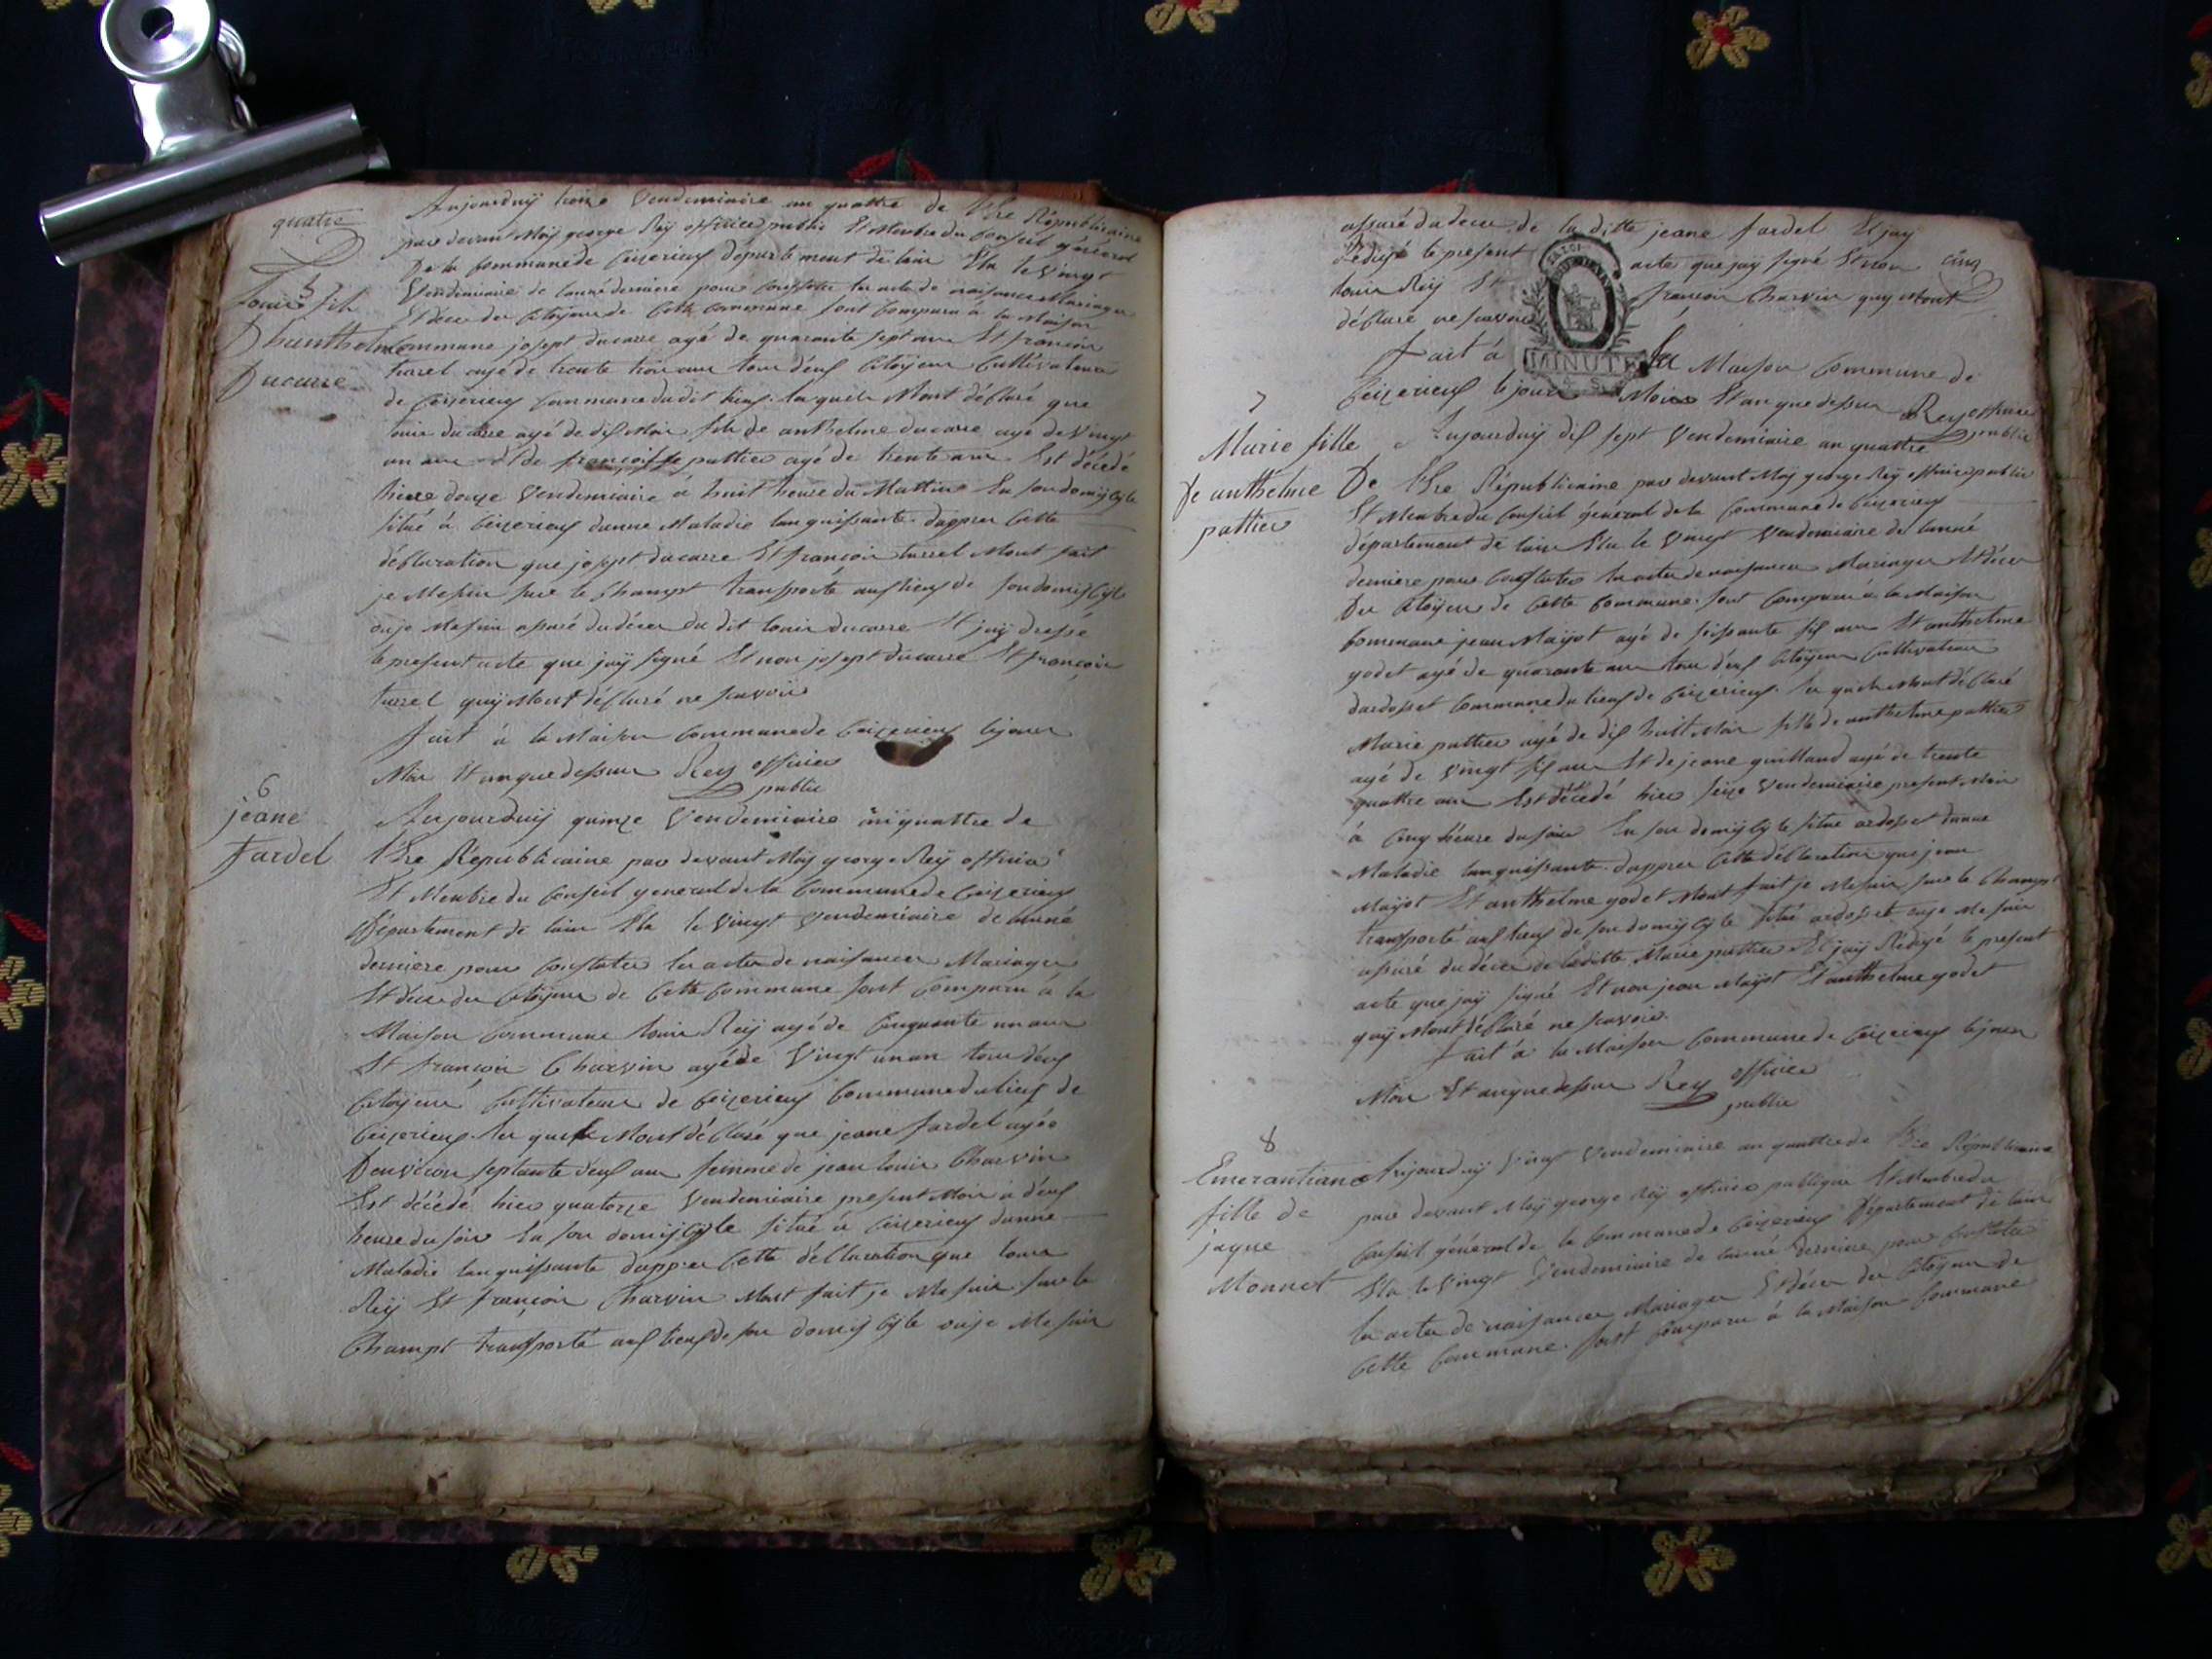 quatre
Aujourduÿ treize Vendemiaire an quattre de l'hre Républicaine
par devant Moÿ george Reÿ officier public Et Membre du Conseil général
De la Commune de Ceizerieux département de lain Elu le vingt
Vendemiaire de lanné derniere pour Constater les acte de naisance Mariages
Et déces des Citoÿens de Cette Commune sont Comparu à la Maison
5
Louis fils
Dhanthelme
Ducarre
Commune josept ducarre agé de quarante sept ans Et françois
turrel agé de trente trois ans tous deux Citoÿens Cultivateurs
de Ceizerieux Commune du dit lieux. lesquels Mont déClaré que
louis ducarre agé de dix Mois fils de anthelme ducarre agé de vingt
un ans Et de françoise puttier agé de trente ans Est décedé
hiere douze Vendemiaire à huit heure du Mattins En son domiçiȷle
situé à Ceizerieux dunne Maladie languissante. dapprer Cette
déClaration que josept ducarre Et françois turrel Mont fait
je Me suis sur le Champt transporté aux lieux de son domiçile
ou je Me suis assuré du déces du dit louis ducarre Et jaÿ dressé
le present acte que jaÿ signé Et non josept ducarre Et françois
turrel quÿ Mont déClaré ne scavoir
fait à la Maison Commune de Ceizerieux le jour
Mois Et an que dessus Rey officier
public
6
jeane
fardel
Aujourduÿ quinze Vendemiaire an quattre de
l'hre Républicaine par devant Moÿ george Reÿ officié
Et Membre du Conseil general de la Commune de Ceizerieux
Département de lain Elu le vingt vendemiaire de lanné
derniere pour Constater les actes de naisances Mariages
Et déces des Citoÿens de Cette Commune sont Comparu à la
Maison Commune louis Reÿ agé de Cinquante un ans
Et françois Charvin agé de vingt un an tous deux
Citoÿens Cultivateurs de Ceizerieux Commune du lieux de
Ceizerieux les quels Mont déClaré que jeane fardel agée
Denviron septante deux ans femme de jean louis Charvin
Est décédé hier quatorze Vendemiaire present Mois à deux
heure du soir En son domiçile situé à Ceizerieux dunne
Maladie languissante dapprer Cette déClaration que louis
Reÿ Et françois Charvin Mont fait je Me suis sur le
Champt transporté aux lieux de son domiçile ou je Me suis
assuré du deces de la ditte jeane fardel Et jaÿ
Rédigé le present acte que jaÿ signé Et non
cinq
louis Reÿ Et françois Charvin quÿ Mont
déClaré ne scavoir
LA LOI
MINUTE
fait à la Maison Commune de
Ceizerieux le jour Mois Et an que dessus Rey officier
public
7
Marie fille
De anthelme
puttier
Aujourduÿ dix sept Vendemiaire an quattre
De l'hre Républicaine par devant Moÿ george Reÿ officier public
Et Membre du Conseil général de la Commune de Ceizerieux
département de lain Elu le vingt Vendemiaire de lanné
derniere pour Constater les actes de naisances Mariages Et déces
Des Citoÿens de Cette Commune. sont Comparu à la Maison
Commune jean Maÿot agé de soissante six ans Et anthelme
godet agé de quarante ans tous deux Citoÿens Cultivateurs
dardosset Commune du lieux de Ceizerieux. les quels Mont déClaré
Marie puttier agé de dix huit Mois fille de anthelme puttier
agé de vingt six ans Et de jeane guilland agé de trente
quattre ans Est décédé hier seize Vendemiaire present Mois
à Cinq heure du soir En son domiçile situé ardosset dunne
Maladie languissante. dapprer Cette déClaration que jean
Maÿot Et anthelme godet Mont fait je Me suis sur le Champt
transporté aux lieux de son domiçile situé ardosset ou je Me suis
assuré du déces de la ditte Marie puttier Et jaÿ Rédigé le present
acte que jaÿ signé Et non jean Maÿot Et anthelme godet
quÿ Mont déClaré ne scavoir.
fait à la Maison Commune de Ceizerieux le jour
Mois Et an que dessus Rey officier
public
8
Emerantiane
fille de
jaque
Monnet
Aujourduÿ vingt Vendemiaire an quattre de l'hre Républicaine
par devant Moÿ george Reÿ officier publique Et Membre du
Conseil général de la Commune de Ceizerieux Département de lain
Elu le vingt Vendemiaire de lanné derniere pour Constater
les actes de naisances Mariages Et déces des Citoÿens de
Cette Commune. sont Comparu à la Maison Commune